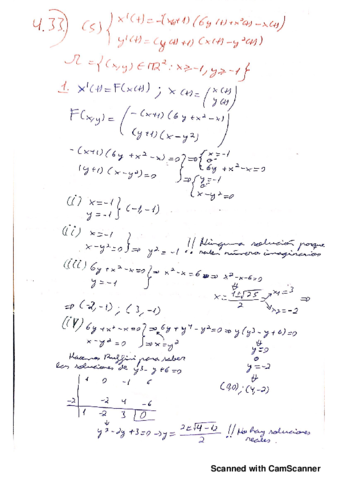 4.33) (S) { x'(t)=-(x(t)+1)(6y(t)+x²(t)-x(t))
y'(t)=(y(t)+1)(x(t)-y²(t))
Ω={(x,y)∈ℝ²: x≥-1, y≥-1}
1. X'(t)=F(X(t)); X(t)=(x(t) y(t))
F(x,y)=(-(x+1)(6y+x²-x)
(y+1)(x-y²))
-(x+1)(6y+x²-x)=0 } ⇒ { x=-1 o 6y+x²-x=0
(y+1)(x-y²)=0 } ⇒ { y=-1 o x-y²=0
(i) x=-1 y=-1 } (-1,-1)
(ii) x=-1 x-y²=0 } ⇒ y²=-1 !! Ninguna solución porque salen números imaginarios
(iii) 6y+x²-x=0 y=-1 } ⇒ x²-x=6 ⇒ x²-x-6=0
x=1±√25/2 x1=3 x2=-2 ⇒
⇒ (-2,-1); (3,-1)
(iv) 6y+x²-x=0 x-y²=0 } ⇒ 6y+y⁴-y²=0 ⇒ y(y³-y+6)=0
⇒ x=y² y=0 o y=-2
Hacemos Ruffini para saber
las soluciones de y³-y+6=0
(0,0); (4,-2)
1 0 -1 6
-2 -2 4 -6
1 -2 3 0
y²-2y+3=0 ⇒ y=2±√4-12/2 !! No hay soluciones reales.
Scanned with CamScanner